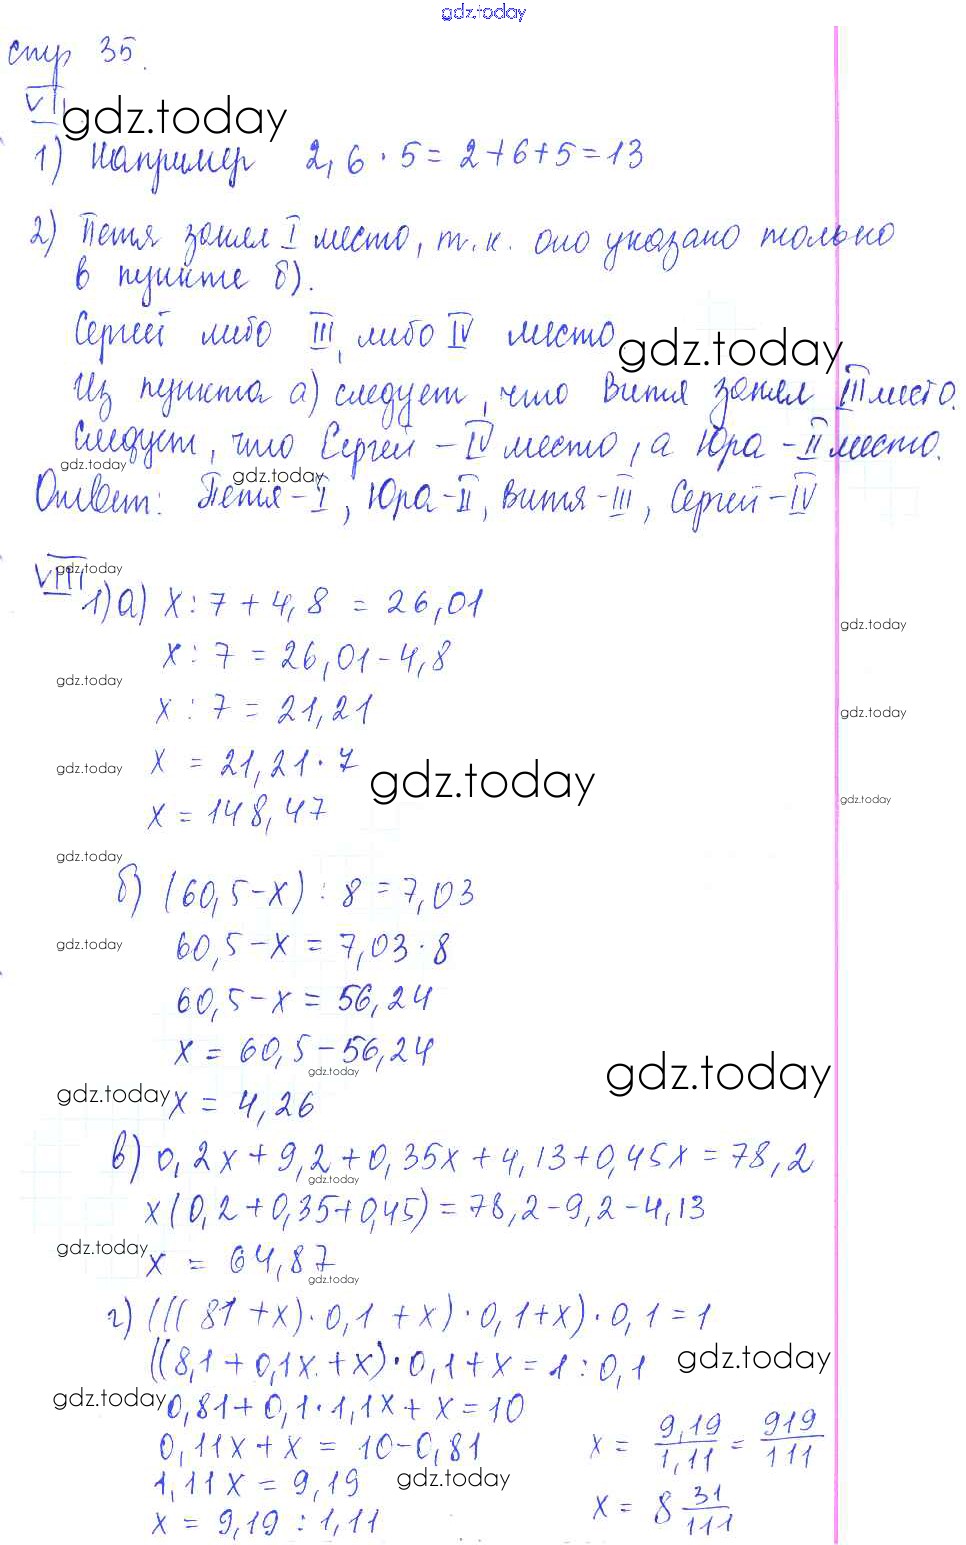 gdz.today
стр 35.
VII
gdz.today
1) Например 2, 6 · 5 = 2 + 6 + 5 = 13
2) Петя занял I место, т.к. оно указано только
в пункте б).
Сергей либо III, либо IV место
gdz.today
Из пункта а) следует, что Витя занял III место.
следует, что Сергей - IV место, а Юра - II место.
gdz.today
gdz.today
Ответ: Петя - I, Юра - II, Витя - III, Сергей - IV
VIII
gdz.today
1) а) x : 7 + 4,8 = 26,01
gdz.today
x : 7 = 26,01 - 4,8
gdz.today
x : 7 = 21,21
gdz.today
x = 21,21 · 7
gdz.today
gdz.today
x = 148,47
gdz.today
gdz.today
б) (60,5 - x) : 8 = 7,03
60,5 - x = 7,03 · 8
gdz.today
60,5 - x = 56,24
x = 60,5 - 56,24
gdz.today
gdz.today
gdz.today
x = 4,26
в) 0,2x + 9,2 + 0,35x + 4,13 + 0,45x = 78,2
gdz.today
x(0,2 + 0,35 + 0,45) = 78,2 - 9,2 - 4,13
gdz.today
x = 64,87
gdz.today
г) (((81 + x) · 0,1 + x) · 0,1 + x) · 0,1 = 1
((8,1 + 0,1x + x) · 0,1 + x = 1 : 0,1
gdz.today
gdz.today
0,81 + 0,1 · 1,1x + x = 10
0,11x + x = 10 - 0,81
1,11x = 9,19
gdz.today
x = 9,19 : 1,11
x = 9,19/1,11 = 919/111
x = 8 31/111